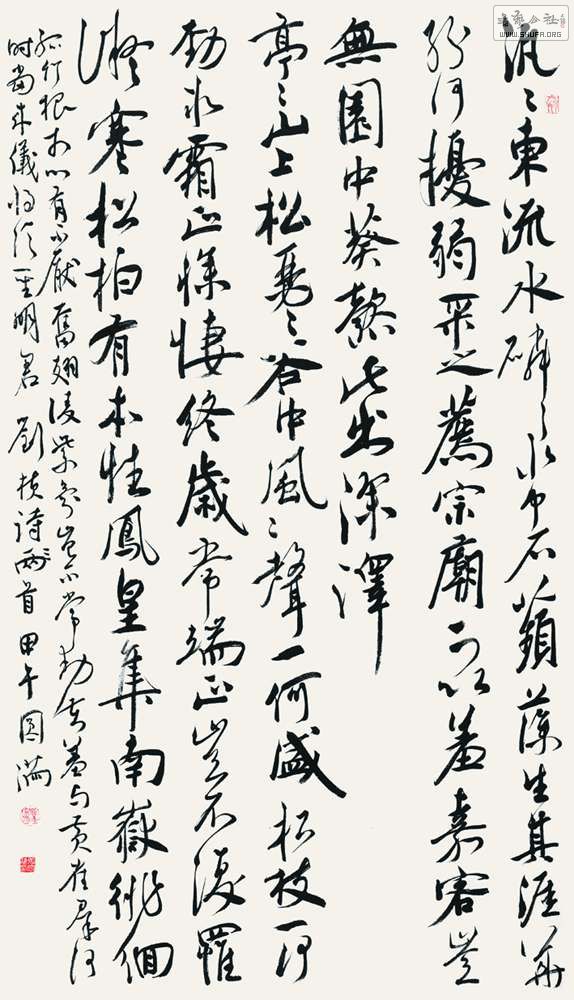 汎〻東流水磷〻水中石蘋藻生其涯華
紛何擾弱采之薦宗廟可以羞嘉客豈
無園中葵懿此出深澤
亭〻山上松瑟〻谷中風〻聲一何盛松枝一何
勁冰霜正慘悽終歲常端正豈不復罹
凝寒松柏有本性鳳皇集南嶽徘徊
孤竹根於心有不厭奮翅淩紫氛豈不常勤苦羞與黃雀群何
時當來儀將須聖明君 劉楨詩兩首 甲午 圓滿
公社
WWW.SHUFA.ORG